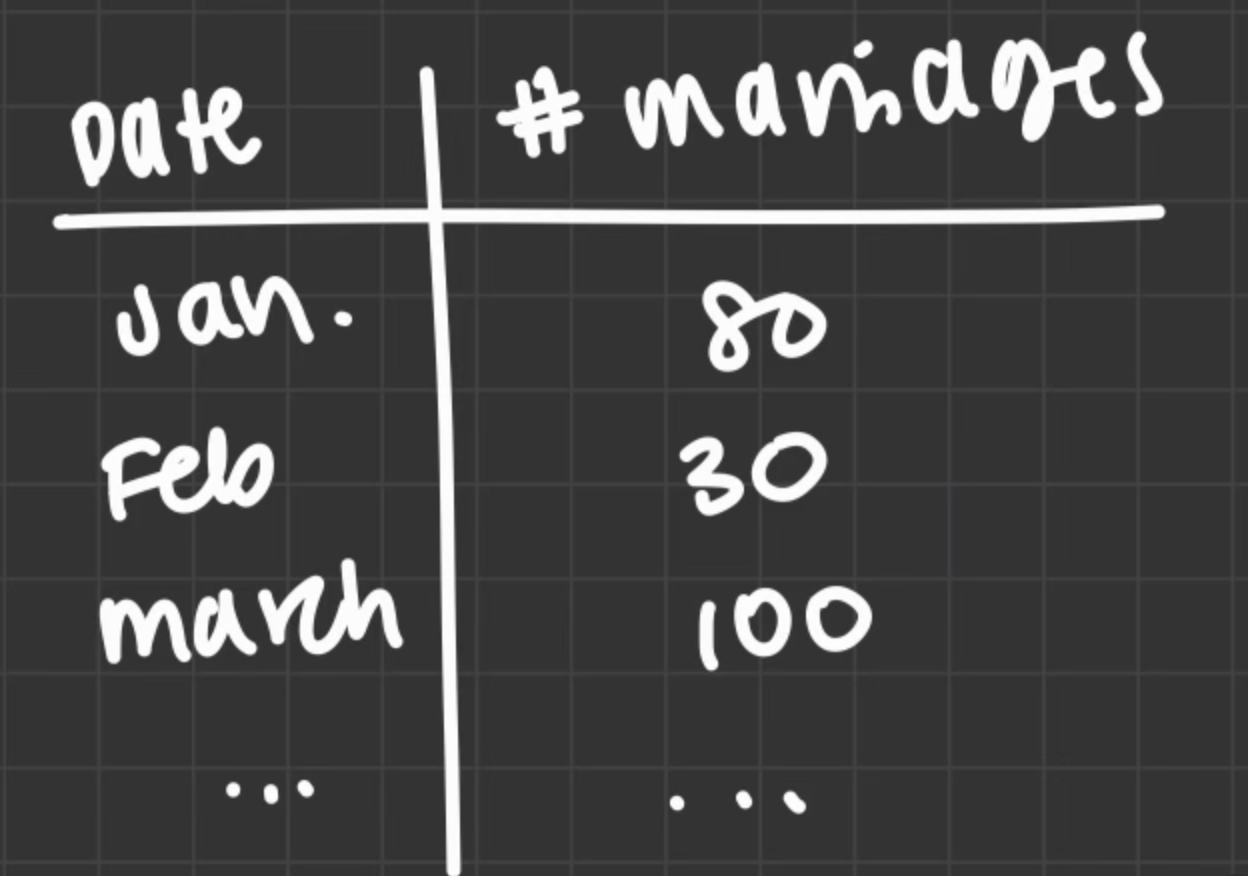 Date # marriages
Jan. 80
Feb 30
march 100
... ...